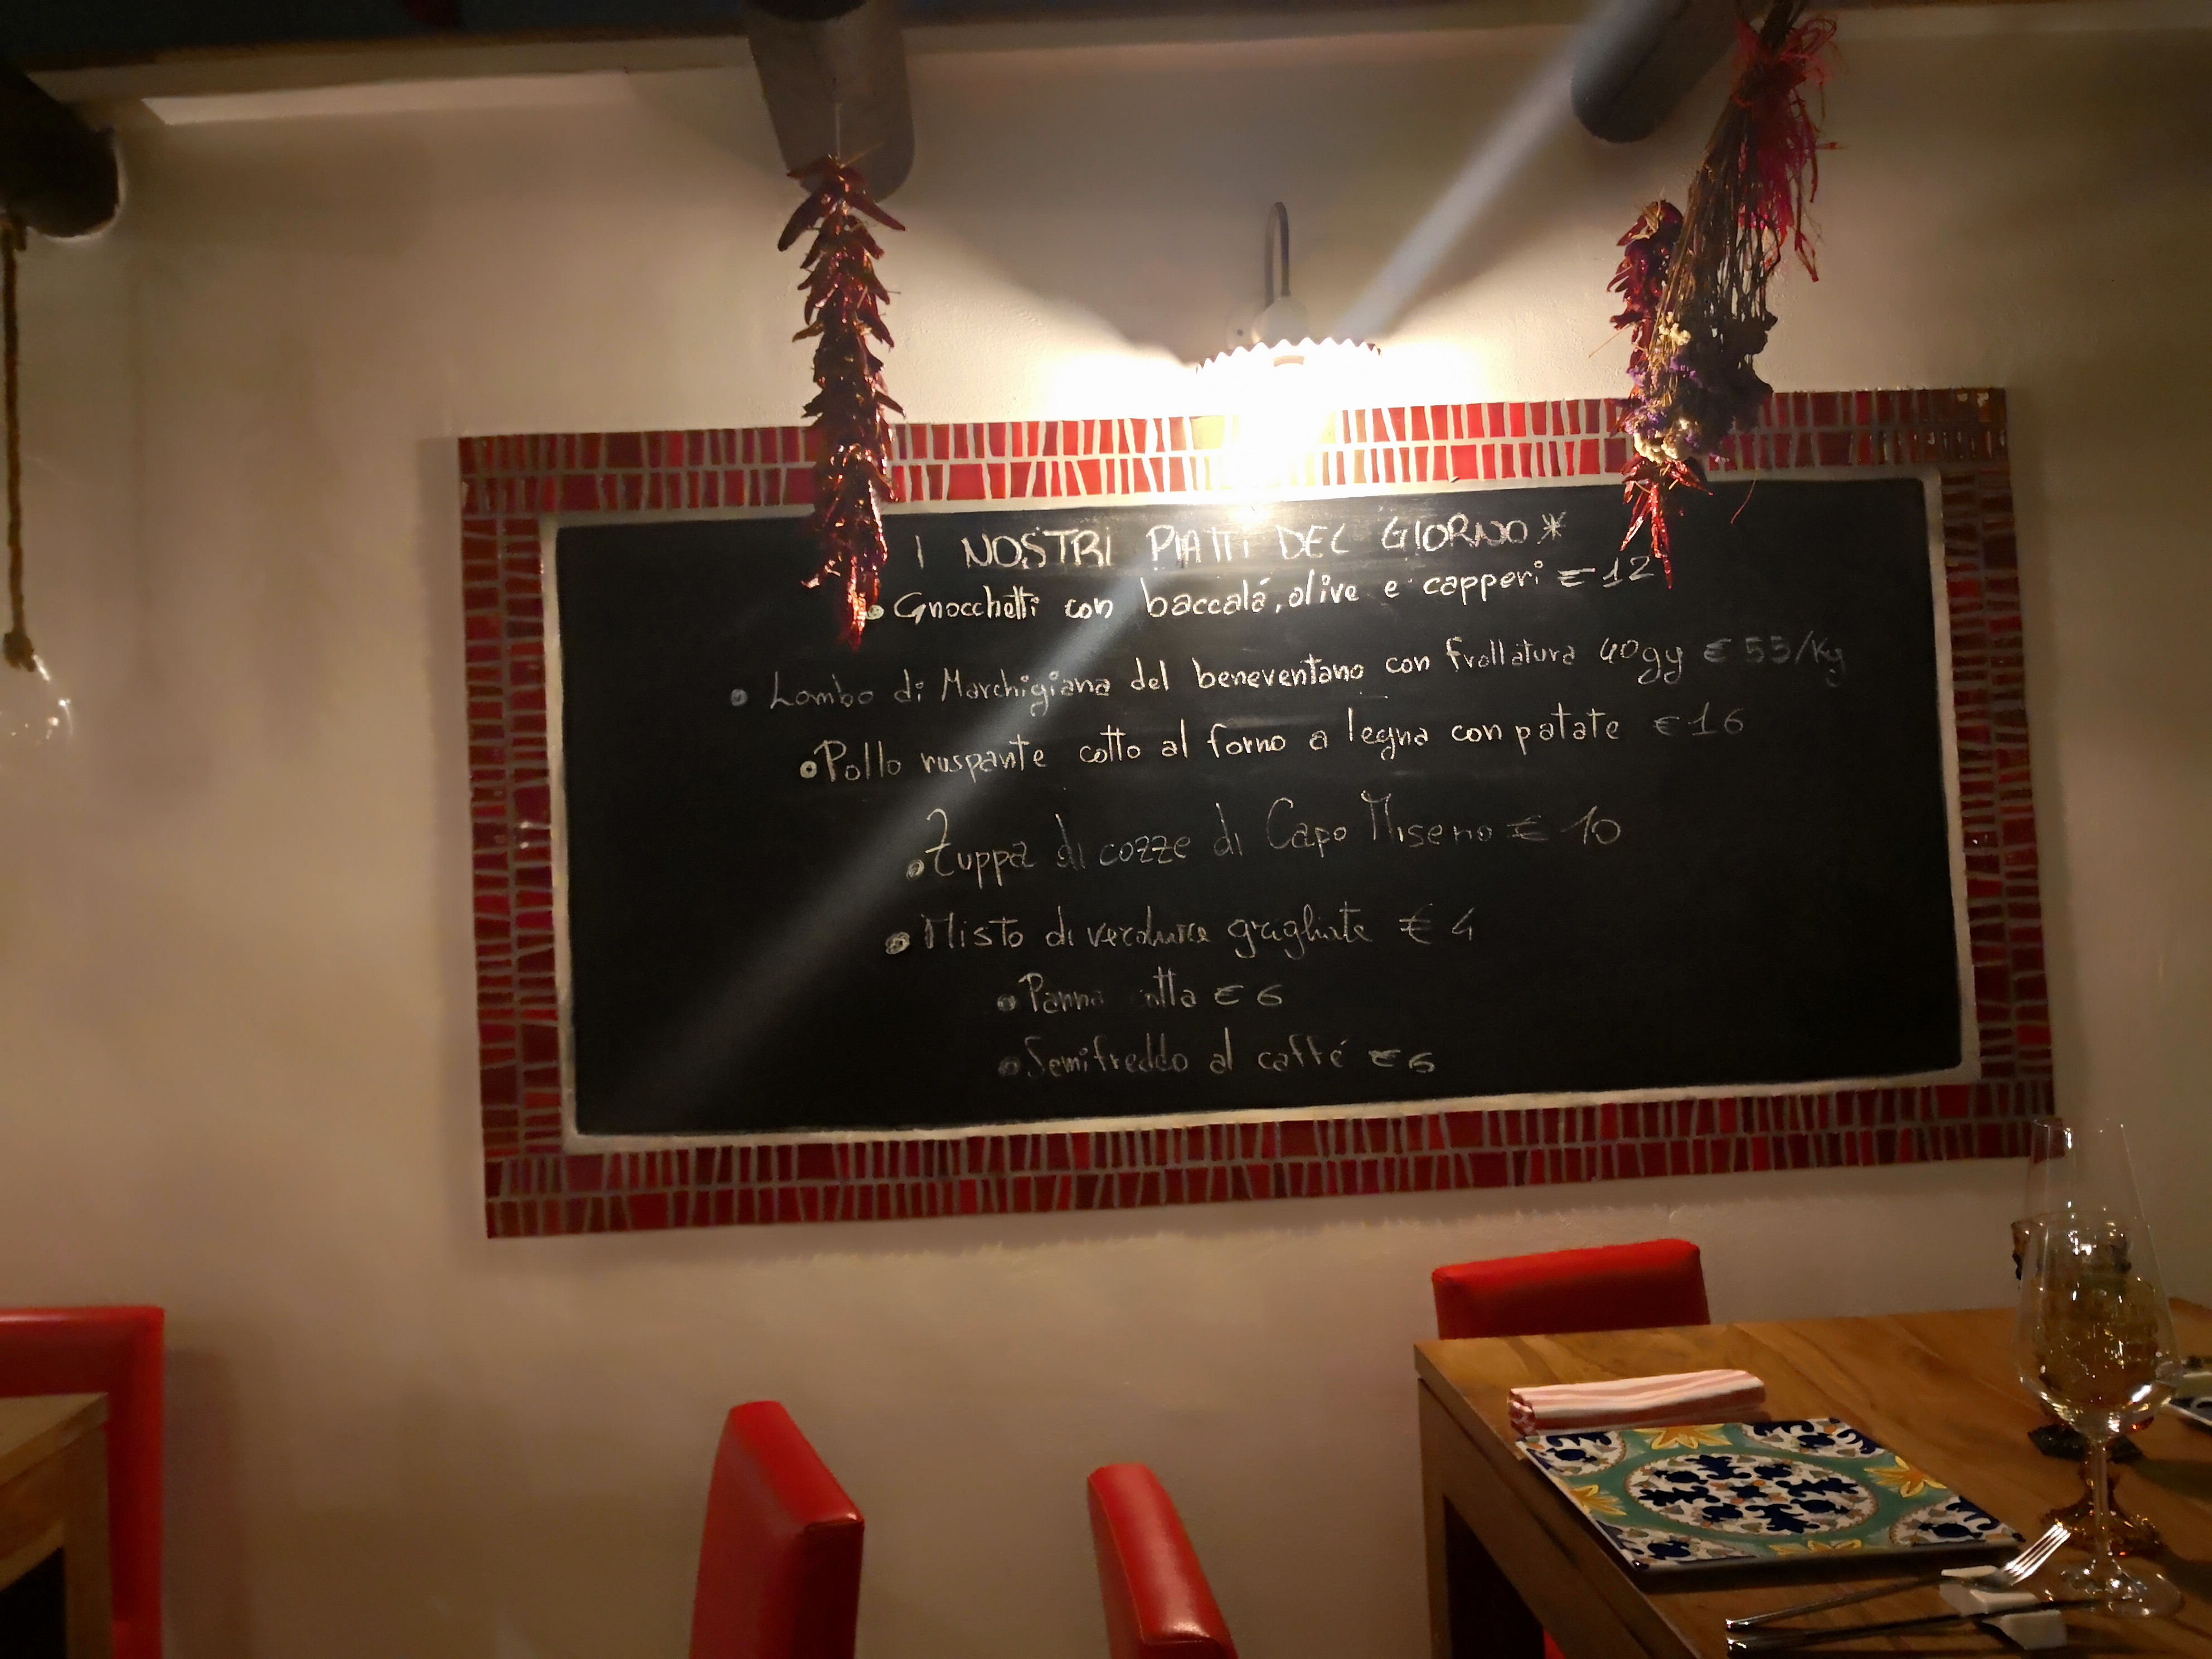 I NOSTRI PIATTI DEL GIORNO*
• Gnocchetti con baccalá, olive e capperi € 12
• Lombo di Marchigiana del beneventano con frollatura 40gg € 55/Kg
• Pollo ruspante cotto al forno a legna con patate € 16
• Zuppa di cozze di Capo Miseno € 10
• Misto di verdure grigliate € 4
• Panna otta € 6
• Semifreddo al caffé € 6